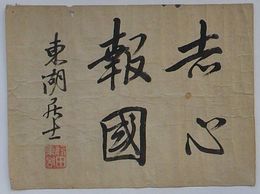 赤心
報國
東湖居士